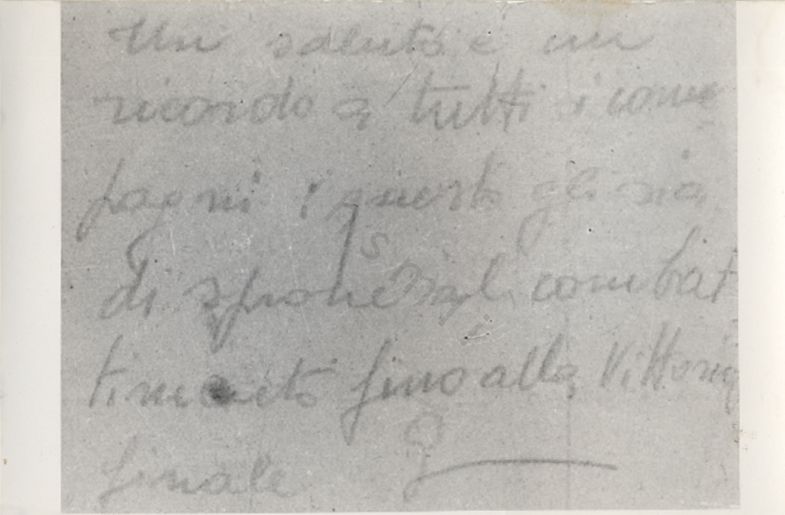 Un saluto e un
ricordo a tutti i com
pagni questo gli sia
di sprone al combat
timento fino alla Vittoria
finale